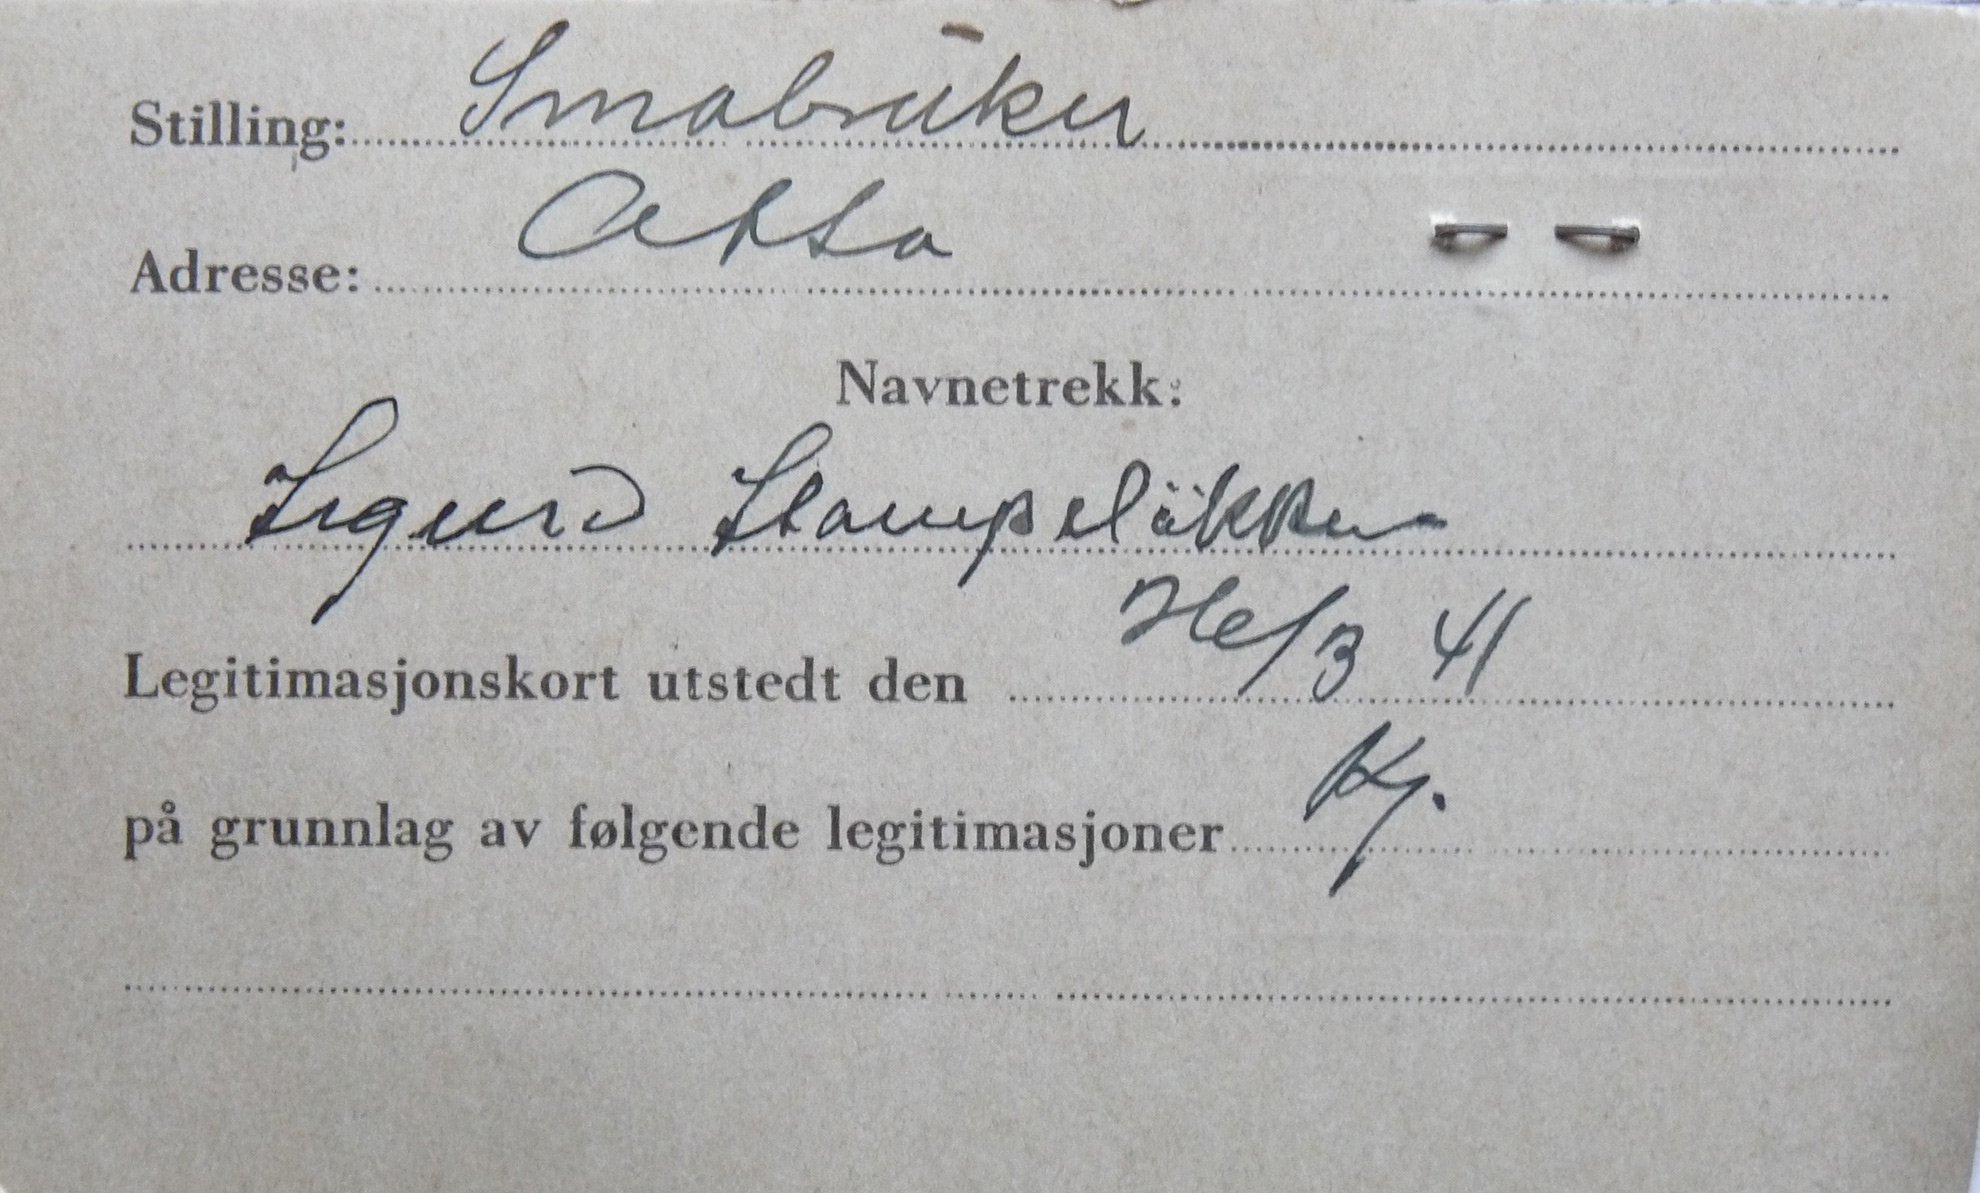 Stilling: Smabruker
Adresse: Otta
Navnetrekk:
Sigurd Stampelökken
Legitimasjonskort utstedt den 41
på grunnlag av følgende legitimasjoner Kj.